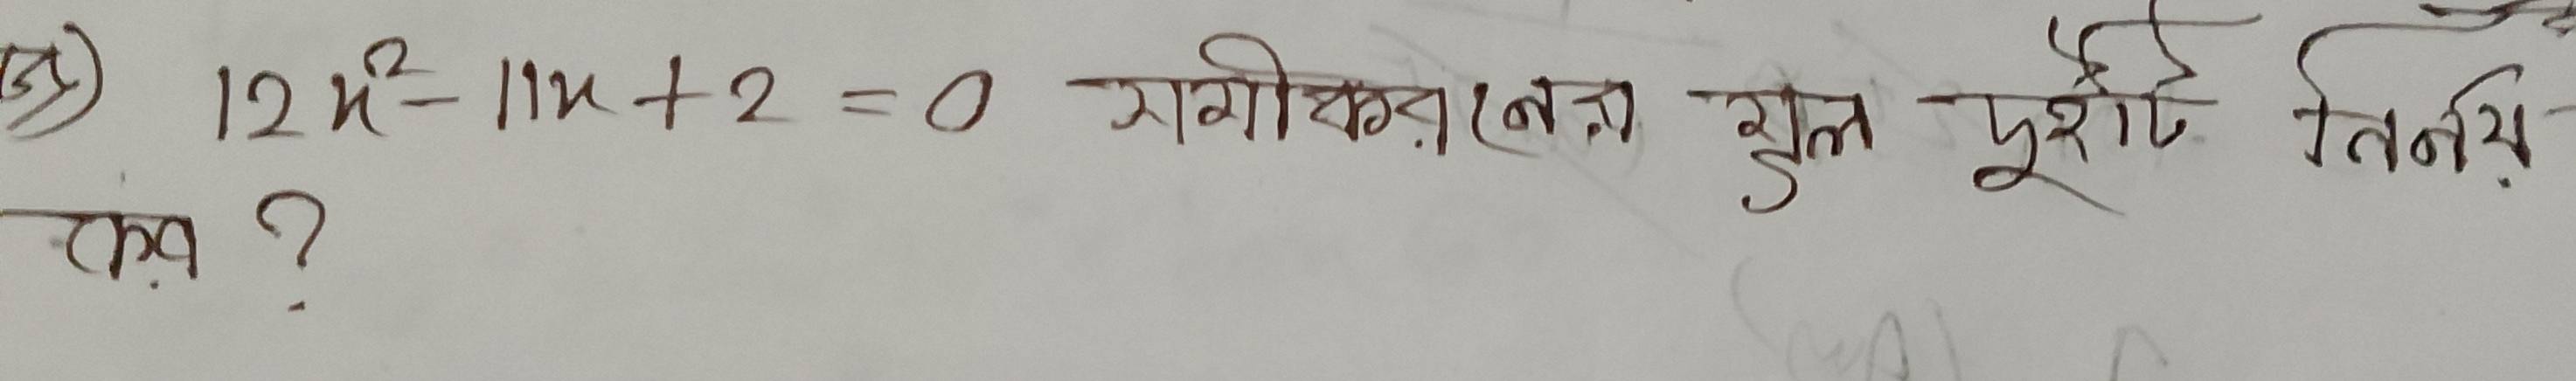 জ) 12x² - 11x + 2 = 0 সমীকরনের মূল দুইটি নির্নয়
কর ?